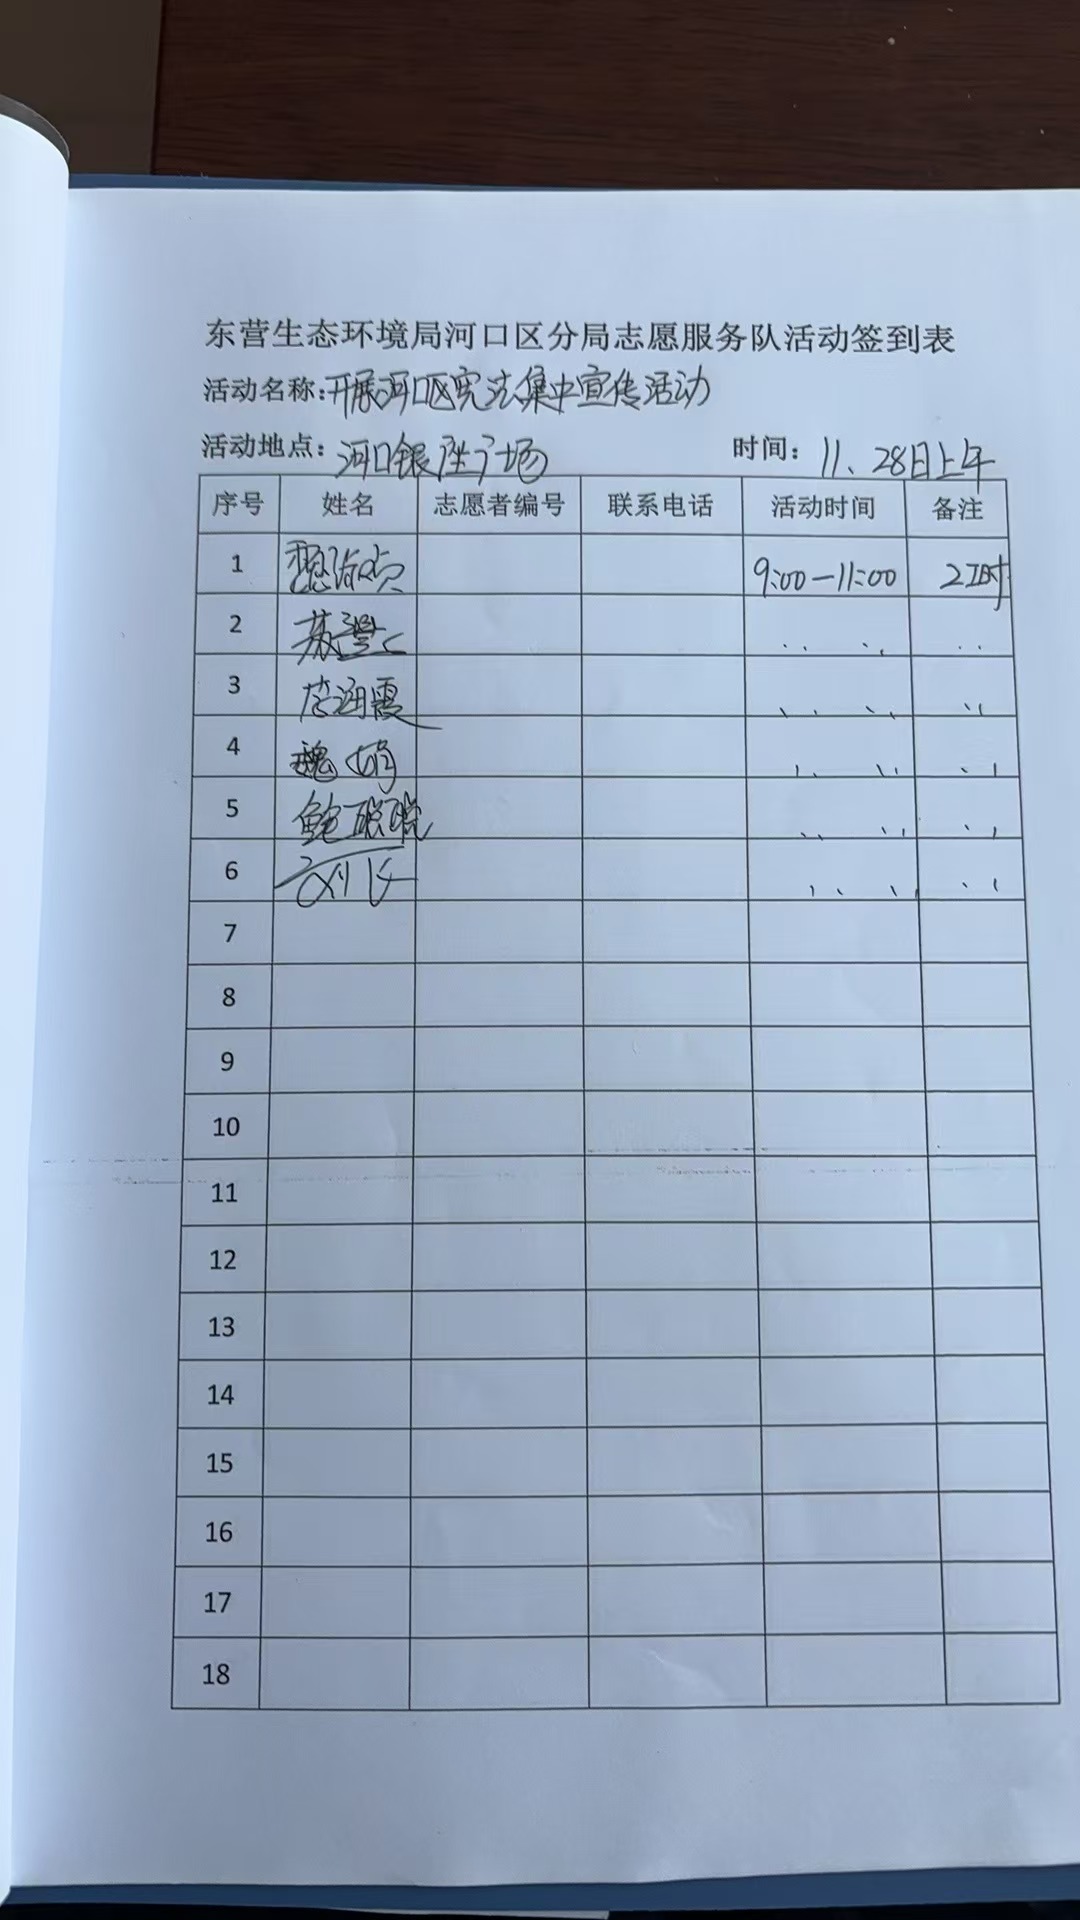 东营生态环境局河口区分局志愿服务队活动签到表
活动名称:开展河口区宪法集中宣传活动
活动地点:河口银座广场 时间:11、28日上午
序号 姓名 志愿者编号 联系电话 活动时间 备注
1 9:00-11:00 2工时
2 苏
3 李海霞
4 魏娟
5 鲍聪聪
6 刘
7
8
9
10
11
12
13
14
15
16
17
18